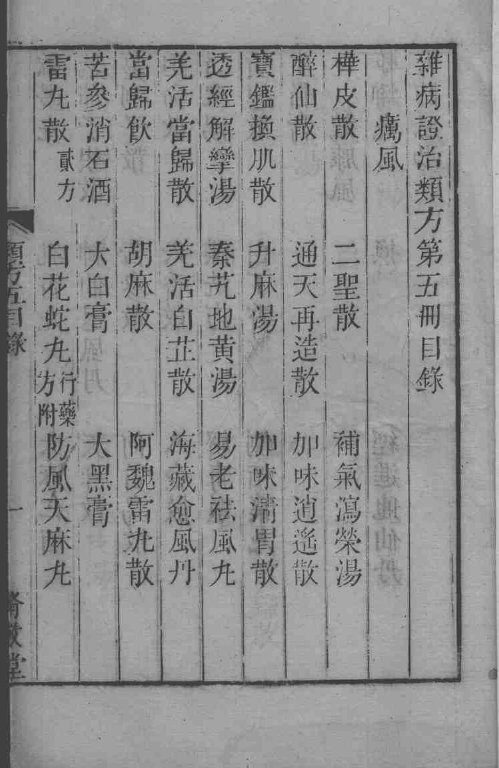 雜病證治類方第五冊目錄
癘風
樺皮散 二聖散 補氣瀉榮湯
醉仙散 通天再造散 加味逍遙散
寶鑑換肌散 升麻湯 加味清胃散
透經解攣湯 秦艽地黃湯 易老祛風丸
羌活當歸散 羌活白芷散 海藏愈風丹
當歸飲 胡麻散 阿魏雷丸散
苦參消石酒 大白膏 大黑膏
雷丸散 貳方 白花蛇丸 行藥方附 防風天麻丸
類方五目錄 一